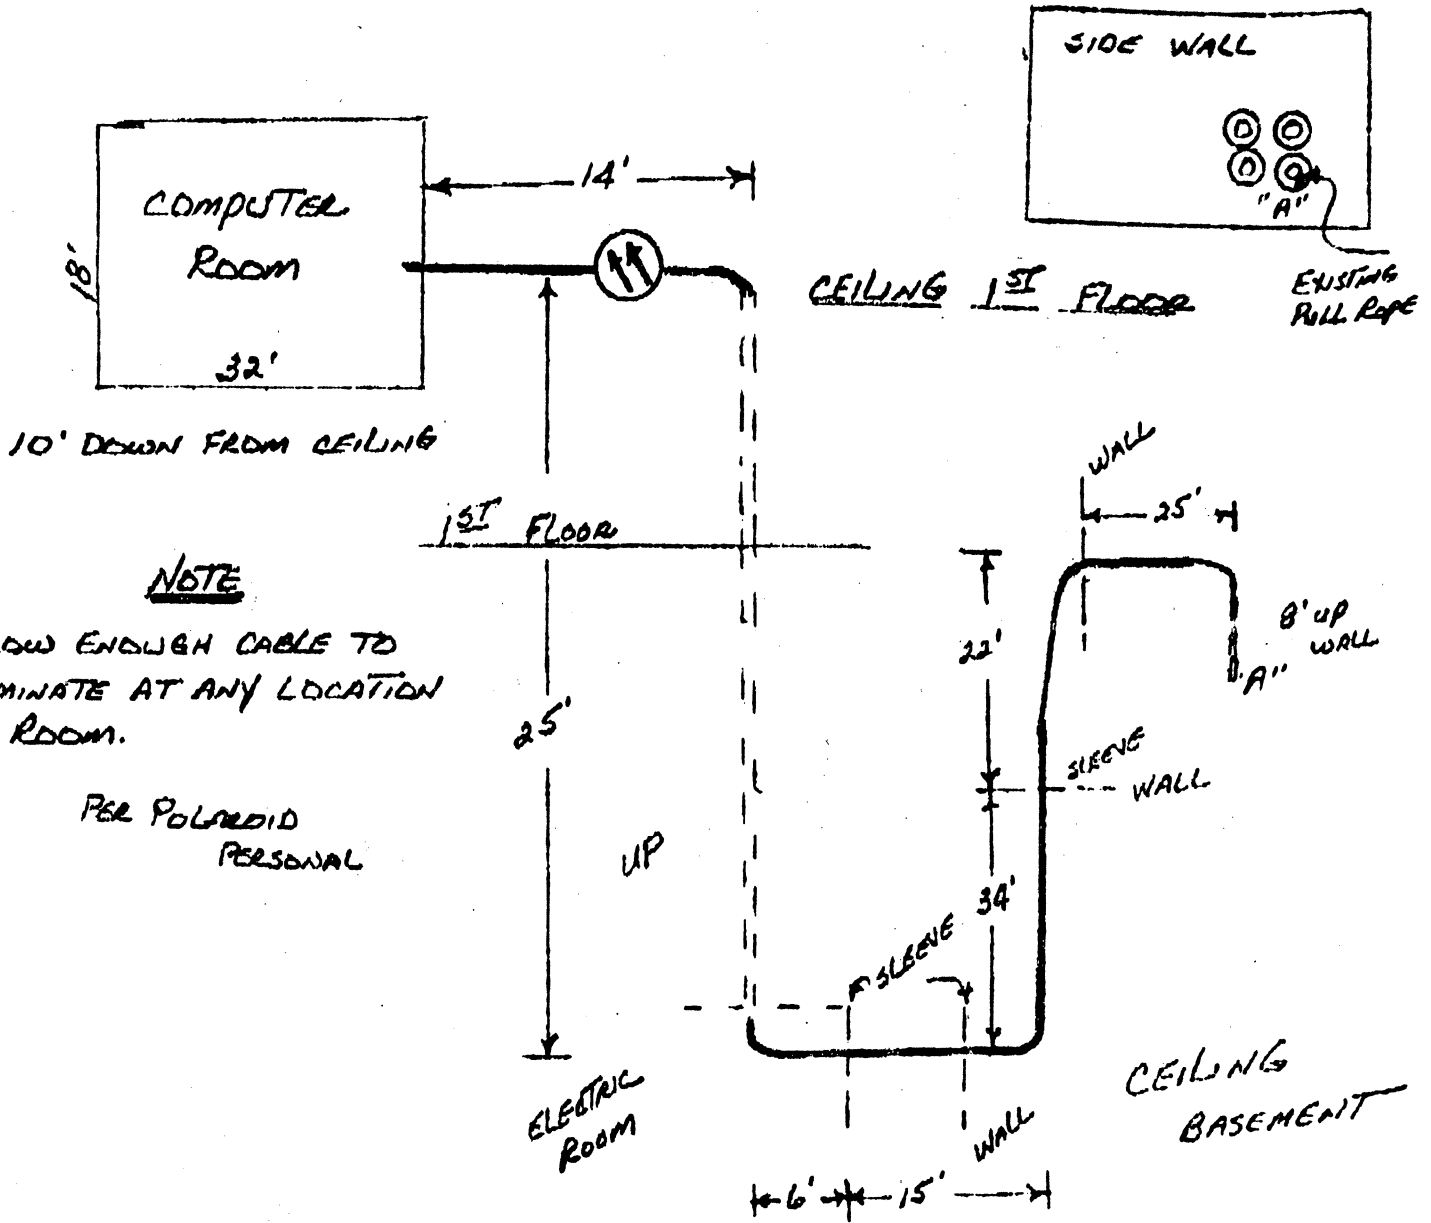 SIDE WALL
"A"
EXISTING
PULL ROPE
14'
COMPUTER
ROOM
18'
32'
CEILING 1ST FLOOR
10' DOWN FROM CEILING
1ST FLOOR
WALL
25'
NOTE
OW ENOUGH CABLE TO
MINATE AT ANY LOCATION
ROOM.
PER POLAROID
PERSONAL
25'
22'
8' UP
WALL
"A"
SLEEVE
WALL
UP
34'
SLEEVE
ELECTRIC
ROOM
WALL
CEILING
BASEMENT
6'
15'